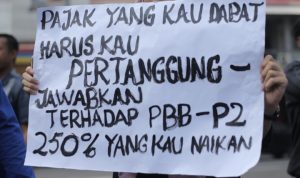 PAJAK YANG KAU DAPAT
HARUS KAU
PERTANGGUNG-
JAWABKAN
TERHADAP PBB-P2
250% YANG KAU NAIKAN